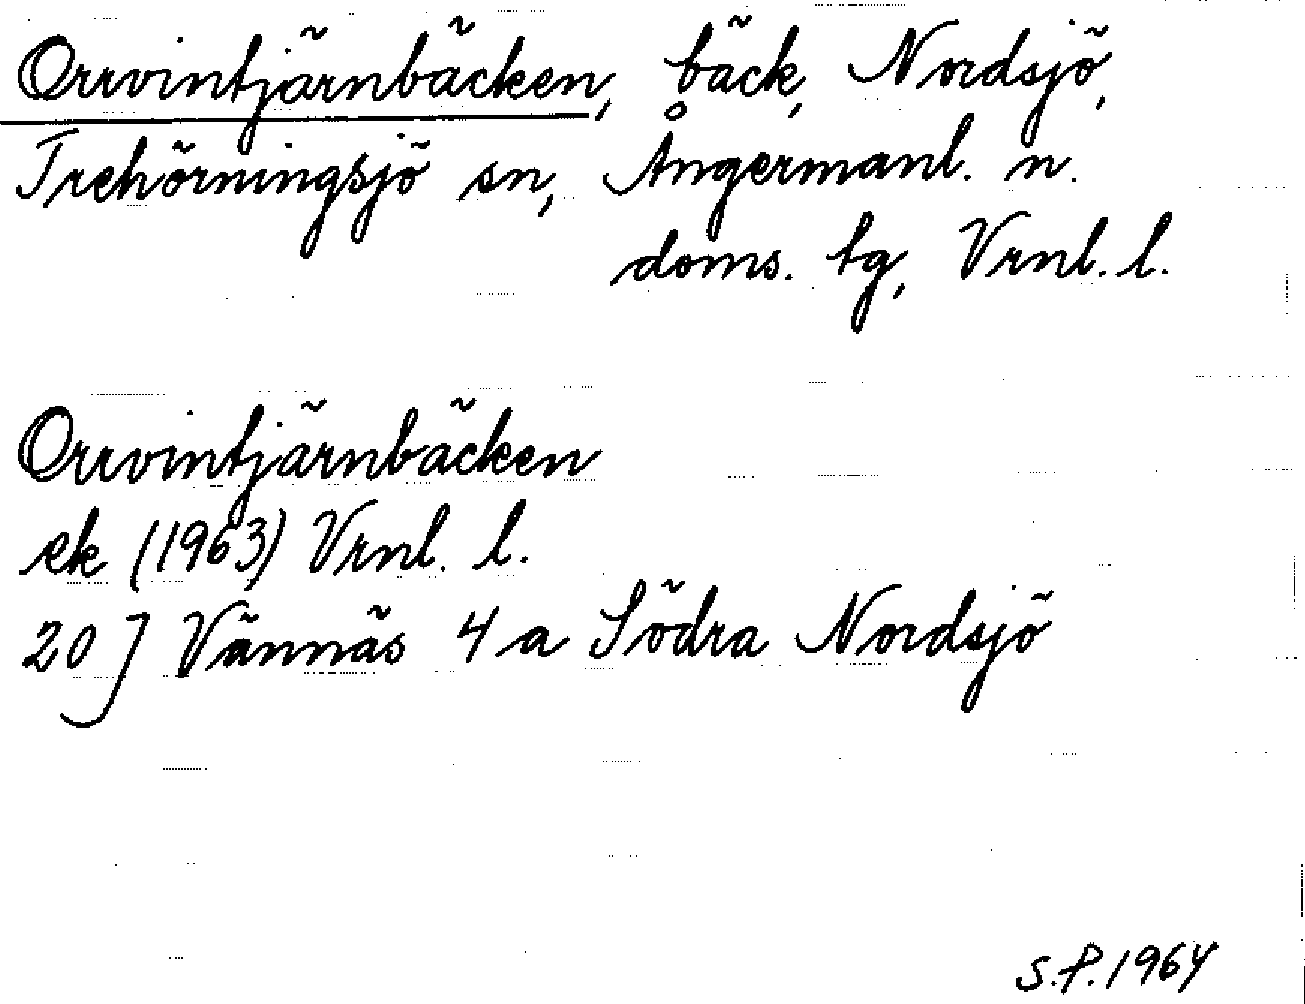 Orrvintjärnbäcken, bäck, Nordsjö,
Trehörningsjö sn, Ångermanl. n.
doms. tg, Vrnl. l.
Orrvintjärnbäcken
ek (1963) Vrnl. l.
20 J Vännäs 4 a Södra Nordsjö
S.P. 1964